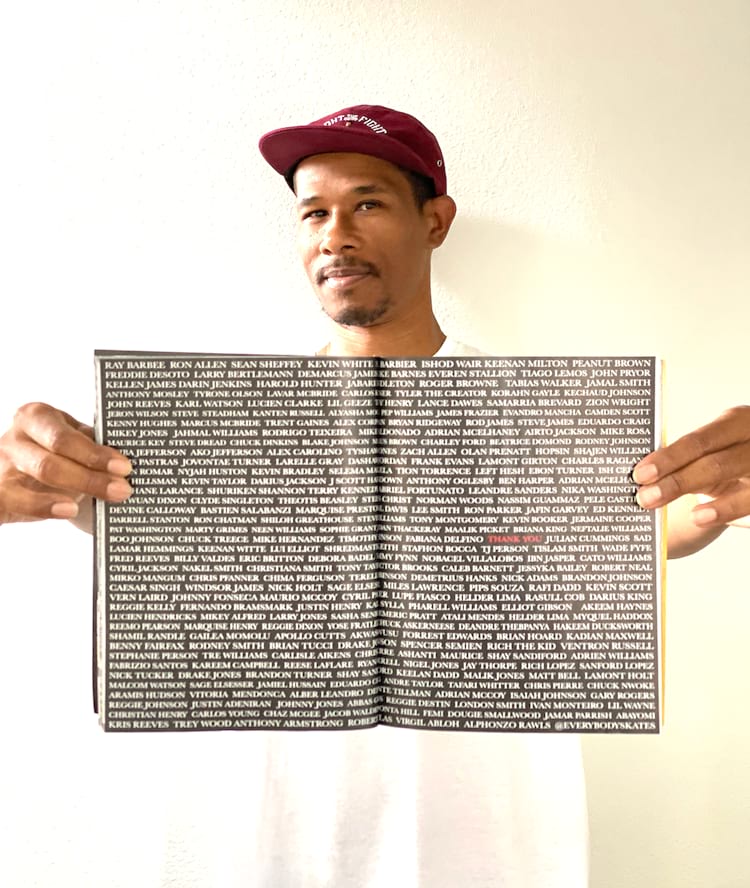 FIGHT
RAY BARBEE RON ALLEN SEAN SHEFFEY KEVIN WHITE BARBIER ISHOD WAIR KEENAN MILTON PEANUT BROWN
FREDDIE DESOTO LARRY BERTLEMANN DEMARCUS JAMES BARNES EVEREN STALLION TIAGO LEMOS JOHN PRYOR
KELLEN JAMES DARIN JENKINS HAROLD HUNTER ROGER BROWNE TABIAS WALKER JAMAL SMITH
ANTHONY MOSLEY TYRONE OLSON LAVAR MCBRIDE TYLER THE CREATOR KORAHN GAYLE KECHAUD JOHNSON
JOHN REEVES KARL WATSON LUCIEN CLARKE LIL GEEZE HENRY LANCE DAWES SAMARRIA BREVARD ZION WRIGHT
JERON WILSON STEVE STEADHAM KANTEN RUSSELL WILLIAMS JAMES FRAZIER EVANDRO MANCHA CAMDEN SCOTT
KENNY HUGHES MARCUS MCBRIDE TRENT GAINES ALEX BRYAN RIDGEWAY ROD JAMES STEVE JAMES EDUARDO CRAIG
MIKEY JONES JAHMAL WILLIAMS RODRIGO TEIXEIRA ADRIAN MCELHANEY AIRTO JACKSON MIKE ROSA
MAURICE KEY STEVE DREAD CHUCK DINKINS BLAKE JOHNSON BROWN CHARLEY FORD BEATRICE DOMOND RODNEY JOHNSON
JEFFERSON AKO JEFFERSON ALEX CAROLINO ZACH ALLEN OLAN PRENATT HOPSIN SHAJEN WILLEMS
PASTRAS JOVONTAE TURNER LARELLE GRAY FRANK EVANS LAMONT GIRTON CHARLES
ROMAR NYJAH HUSTON KEVIN BRADLEY TORRENCE LEFT HESH EBON TURNER ISH
HILLSMAN KEVIN TAYLOR DARIUS JACKSON J SCOTT ANTHONY OGLESBY BEN HARPER ADRIAN
LARANCE SHURIKEN SHANNON TERRY FORTUNATO LEANDRE SANDERS NIKA
DIXON CLYDE SINGLETON THEOTIS BEASLEY CHRIST NORMAN WOODS NASSIM GUAMMAZ PELE
DEVINE CALLOWAY BASTIEN SALABANZI MARQUISE DAVIS LEE SMITH RON PARKER JAFIN GARVEY ED
DARRELL STANTON RON CHATMAN SHILOH GREATHOUSE TONY MONTGOMERY KEVIN BOOKER JERMAINE COOPER
PAT WASHINGTON MARTY GRIMES COREY DUFFEL THACKERAY MAALIK PICKET BRIANA KING NEFTALIE WILLIAMS
BOO JOHNSON CHUCK TREECE MIKE HERNANDEZ FABIANA DELFINO THANK YOU JULIAN CUMMINGS SAD
LAMAR HEMMINGS KEENAN WITTE LUI ELLIOT STAPHON BOCCA TJ PERSON TISLAM SMITH WADE FYFE
FRED REEVES BILLY VALDES ERIC BRITTON DEBORA FYNN NOBACEL VILLALOBOS IBN JASPER CATO WILLIAMS
CYRIL JACKSON NAKEL SMITH CHRISTIANA SMITH TONY BROOKS CALEB BARNETT JESSYKA BAILEY ROBERT NEAL
MIRKO MANGUM CHRIS PFANNER CHIMA FERGUSON DEMETRIUS HANKS NICK ADAMS BRANDON JOHNSON
CAESAR SINGH WINDSOR JAMES NICK HOLT SAGE MILES LAWRENCE PIPS SOUZA RAFI DADD KEVIN SCOTT
VERN LAIRD JOHNNY FONSECA MAURIO MCCOY CYRIL LUPE FIASCO HELDER LIMA RASUL COB DARIUS KING
REGGIE KELLY FERNANDO BRAMSMARK JUSTIN HENRY PHARELL WILLIAMS ELLIOT GIBSON AKEEM HAYNES
LUCIEN HENDRICKS MIKEY ALFRED LARRY JONES SASHA PRATT ATALI MENDES HELDER LIMA MYQUEL HADDOX
REEMO PEARSON MARQUISE HENRY REGGIE DIXON YOSE ASKERNEESE DEANDRE THEBPANYA HAKEEM DUCKSWORTH
SHAMIL RANDLE GAILEA MOMOLU APOLLO CUTTS FORREST EDWARDS BRIAN HOARD KADIAN MAXWELL
BENNY FAIRFAX RODNEY SMITH BRIAN TUCCI DRAKE SPENCER SEMIEN RICH THE KID VENTRON RUSSELL
STEPHANIE PERSON TRE WILLIAMS CARLISLE AIKENS ASHANTI MAURICE SHAY SANDIFORD ADRIEN WILLIAMS
FABRIZIO SANTOS KAREEM CAMPBELL REESE LAFLARE NIGEL JONES JAY THORPE RICH LOPEZ SANFORD LOPEZ
NICK TUCKER DRAKE JONES BRANDON TURNER SHAY KEELAN DADD MALIK JONES MATT BELL LAMONT HOLT
MALCOM WATSON SAGE ELSESSER JAMEEL HUSSAIN EDUARDO TAYLOR TAFARI WHITTER CHRIS PIERRE CHUCK NWOKE
ARAMIS HUDSON VITORIA MENDONCA ALBER LEANDRO TILLMAN ADRIAN MCCOY ISAIAH JOHNSON GARY ROGERS
REGGIE JOHNSON JUSTIN ADENIRAN JOHNNY JONES REGGIE DESTIN LONDON SMITH IVAN MONTEIRO LIL WAYNE
CHRISTIAN HENRY CARLOS YOUNG CHAZ MCGEE JACOB HILL FEMI DOUGIE SMALLWOOD JAMAR PARRISH ABAYOMI
KRIS REEVES TREY WOOD ANTHONY ARMSTRONG VIRGIL ABLOH ALPHONZO RAWLS @EVERYBODYSKATES